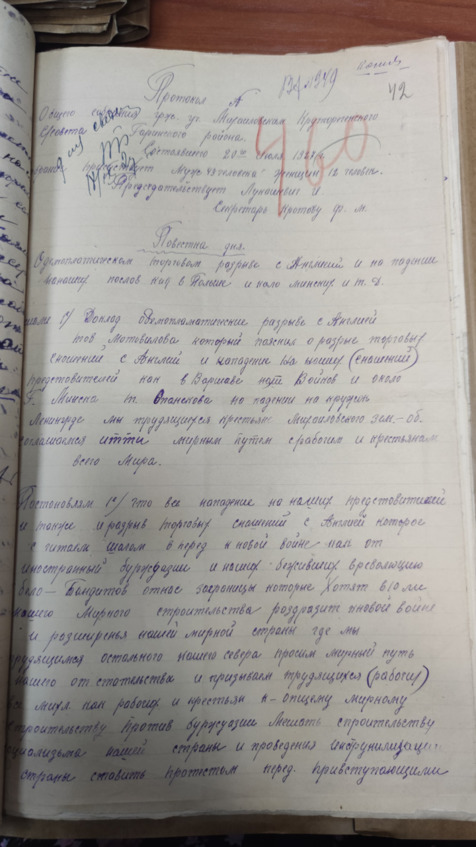 42
Протокол №
Общего собрания гр-н. уч. Михайловская
Совета Гаринского района.
Состоявшего 20го июля 1927 г.
присутствует муж. 43 человека женщин 12 человек.
Председательствует Лукашевич и
Секретарь Кротову Ф. М.
460
Повестка дня.
О демплотическом торговом разрыве с Англией и на падение
на наших послов как в Польше и коло минских и т. д.
1/ Доклад о демоплотические разрыве с Англией
тов. Мотовилова который пояснил о разрые торговых
сношений с Англий и нападение на наших (сношений)
представителей как в Варшаве т. Войков и около
г. Минска т. Опанского на падения на
Ленинграде мы трудящиеся крестьяне Михайловского зем.-об.
соглашаемся итти мирным путем с рабочим и крестьянам
всего Мира.
Постановлям 1е/ Что все нападение на наших представителей
и также и разрыв торговых сношений с Англией которое
с читаем шагом в перед к новой войне как от
иностранный буржуазии и наших беживших в революцию
бело-Бандитов от нас заграницы которые хотят в 10 ле
нашего мирного строительства раздразить к новой войне
и разширенья нашей мирной страны где мы
трудящимся остального нашего севера просим мерный путь
нашего от стательства и призывам трудящихся (рабочих)
как рабочих и крестьян к-общему мирному
строительству против буржуазии мешать строительству
социализма нашей страны и проведения
страны ставить протестом перед привступающими